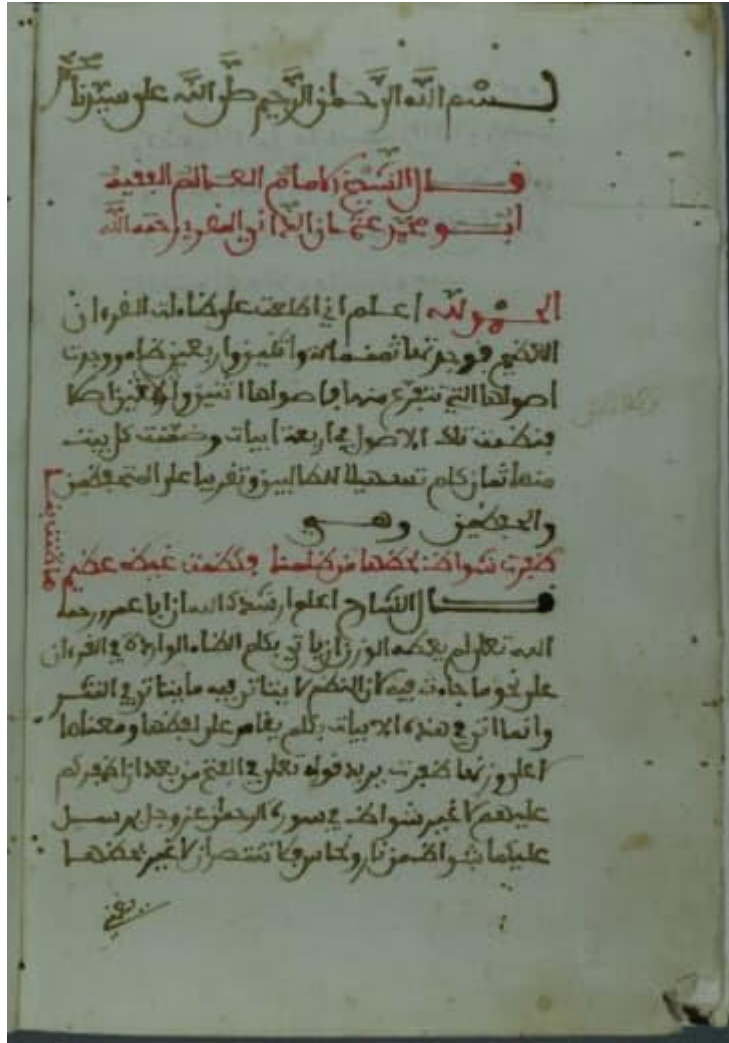 بسم الله الرحمن الرحيم صلى الله على سيدنا محمد
قال الشيخ الامام العالم الفقيه
ابو عمر عثمان الداني المقرئ رحمه الله
الحمد لله اعلم اني اطلعت على ظاءات القرءان
فوجدتها ثمنمائة واثنين واربعين ظاء ووجدت
اصولها التي تتفرع منها اصولها اثنين وثلاثين اصلا
فنظمت تلك الاصول في اربعة ابيات وضمنت كل بيت
منها ثمان كلم تسهيلا للطالبين وتقريبا على المتحفظين
والحفظين وهي
ظفرت شواظ بحظها من ظلمنا فكظمت غيظ عظيم
ما ظننت بنا
قال الشارح اعلم ارشدك الله ان ابا عمرو رحمه
الله تعلى لم يعطه الوزن ان ياتي بكلم الظاء الواردة في القرءان
على نحو ما جاءت فيه لان النظم لا يتاتى فيه ما يتاتى في النثر
وانما اتى في هذه الابيات بكلم يقاس على لفظها ومعناها
لا على وزنها ظفرت يريد قوله تعلى في الفتح من بعد ان اظفركم
عليهم لا غير شواظ في سورة الرحمن عز وجل يرسل
عليكما شواظ من نار ونحاس فلا تنتصران لا غير بحظها
يعني